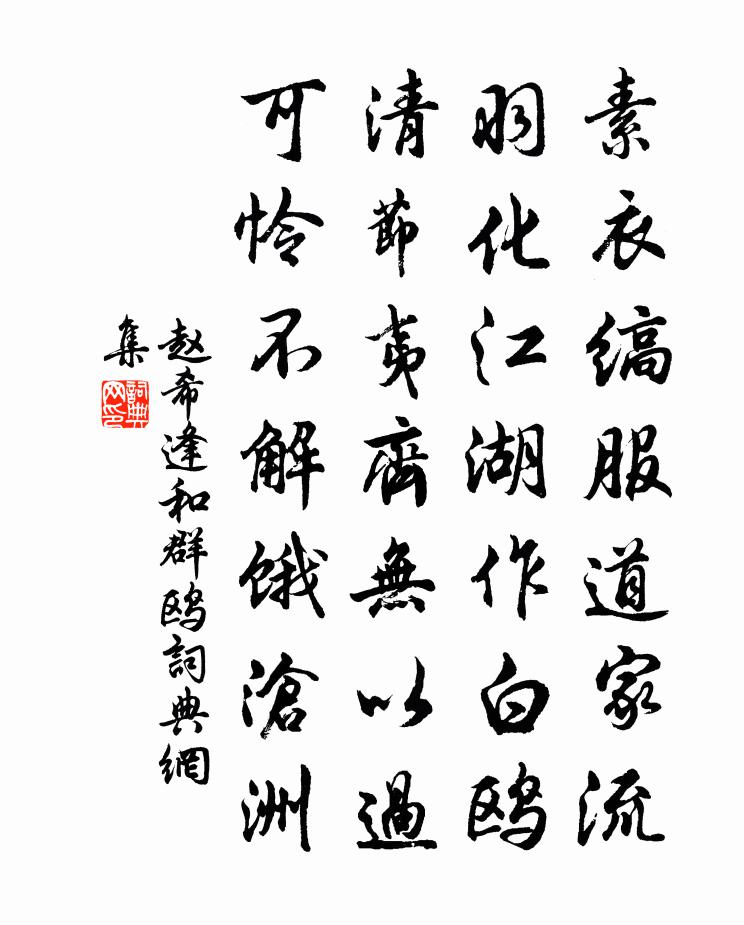 素衣縞服道家流
羽化江湖作白鸥
清節夷齊無以過
可怜不解饿滄洲
赵希逢和群鸥詞典網
集
詞典
网印